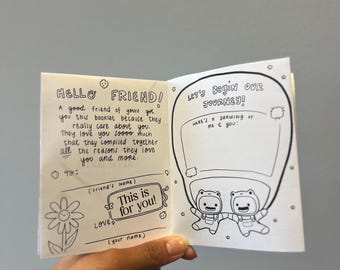 HELLO FRIEND!
A good friend of yours got
you this booklet because they
really care about you.
They love you soooo much
that they compiled together
all the reasons they love
you and more.
TO:
(friend's name)
This is
for you!
LOVE,
(your name)
LET'S BEGIN OUR
JOURNEY!
HERE'S A DRAWING OF
ME & YOU: